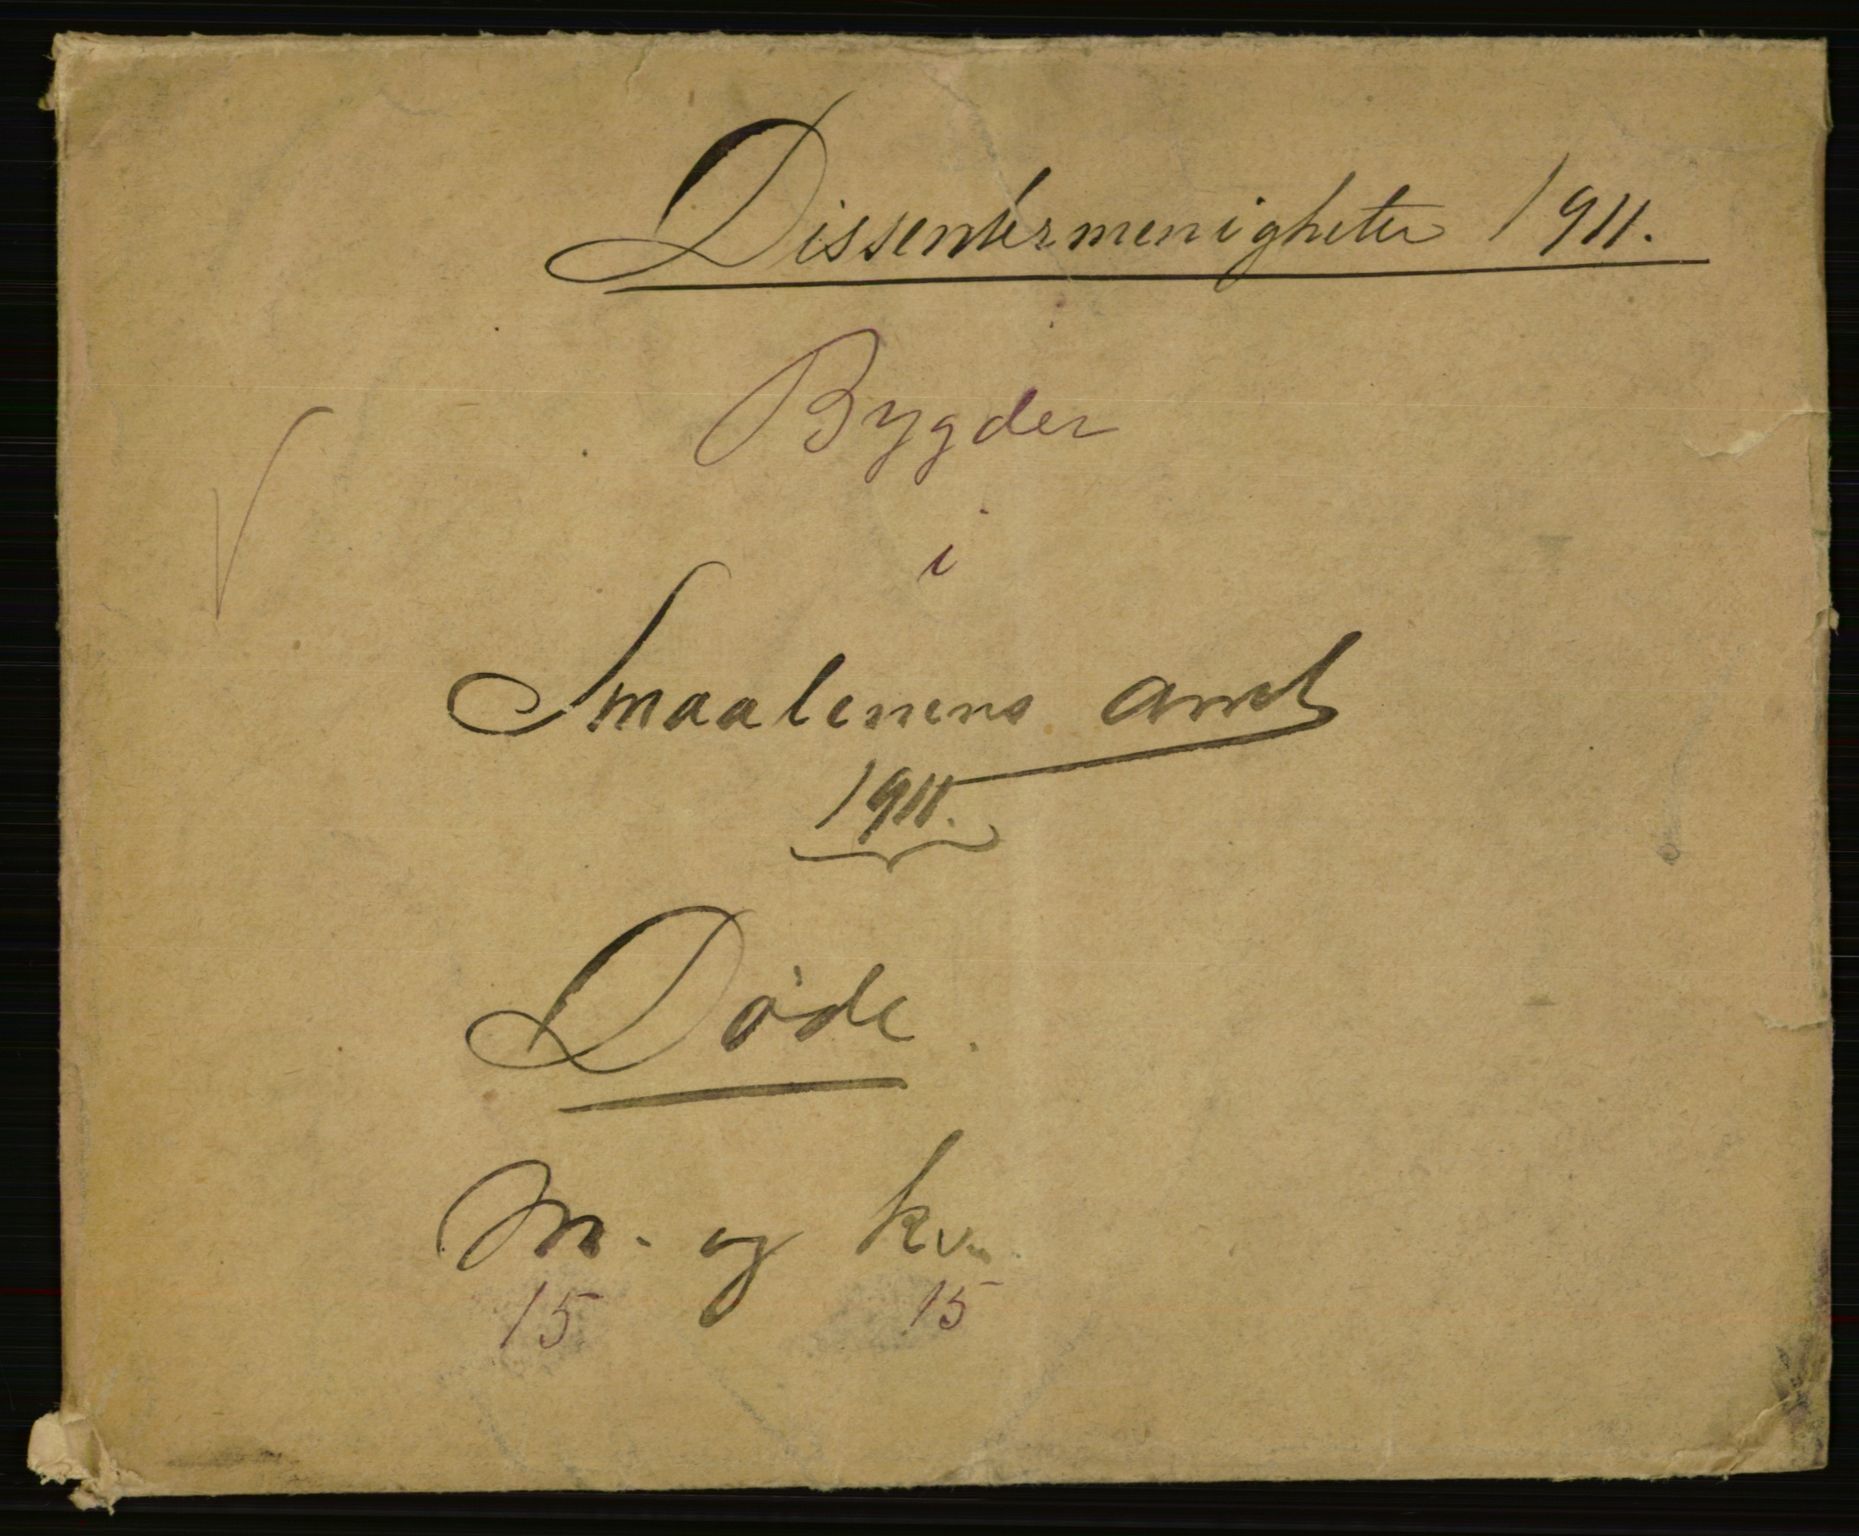 Dissentermenigheter 1911.
Bygder
i
Smaalenens amt
1911.
Døde.
M. og kv.
15 15